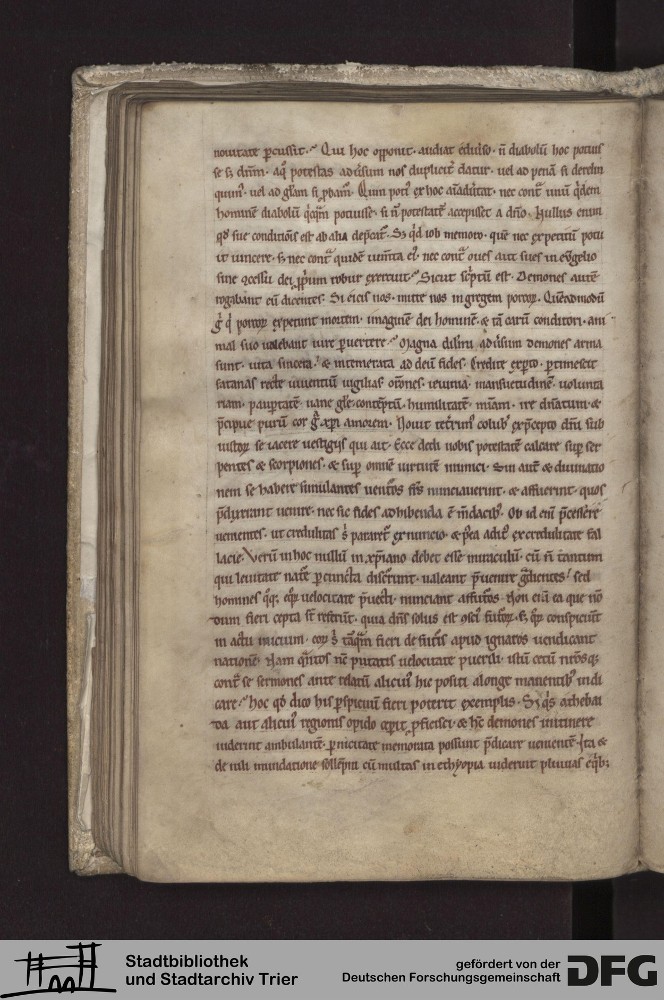 nouitate ꝑcussit. Qui hoc opponit. audiat eduiso. n̄ diabolū hoc potuis
se sꝫ dn̄m. potestas nos duplicit̄ datur. uel ad penā si derelin
quim᷒. uel ad gl̄am si ꝓbam᷒. ex hoc nec cont̄ unū q̇dem
hominē diabolū potuisse. si n̄ potestatē accepisset a dn̄o. Nullus enim
qd̄ sue est ab alia Sꝫ qd̄ iob memoro. quē nec expetitū potu
it uincere. sꝫ nec cont̄ quidē nec cont̄ oues aut sues in euḡelio
sine dei ꝓprium robur exercuit. Sicut sc̄ptū est. Demones autē
rogabant eū dicentes. Si eicis nos. mitte nos in gregem porcoꝝ. Quēadmodū
g̊ q̇ porcoꝝ expetunt mortem. imaginē dei hominē. & tā carū conditori. ani
mal suo ualebant iure ꝑuertere. Magna dilc̄i aduersum demones arma
sunt. uita sincera. & intemerata ad deū fides. Credite exꝑto. ꝑtimescit
satanas recte uiuentiū uigilias. or̄ones. ieiunia. mansuetudinē. uolunta
riam. pauꝑtatē. uane gl̄e. contēptū. humilitatē. mīam. ire dn̄atum. &
p̄cipue purū cor xp̄i amorem. Nouit colub᷒ exp̄cepto dn̄i. sub
iustoꝝ se iacere uestigijs qui ait. Ecce dedi uobis potestatē calcare suꝑ ser
pentes & scorpiones. & suꝑ omnē uirtutē inimici. Sin autē & diuinatio
nem se habere simulantes uentos fr̄s nunciauerint. & affuerint. quos
p̄dixerant uenire. nec sic fides adhibenda ē mēdacib᷒. Ob id enī p̄cessere
uementes. ut credulitas s̄ pararet᷒ ex nuncio. & p̄ea adit᷒ ex credulitate fal
lacie. Verū in hoc nullū in xp̄iano debet esse miraculū. cū n̄ tantum
qui leuitate nat̄e ꝑ cuncta discurrunt. ualeant p̄uenire sed
homines q̊ꝗꝫ. equoꝝ uelocitate p̄uecti. nunciant affuturos. Non enī ea que nō
dum fieri cepta st̄ referūt. quia dn̄s solus est futuroꝝ. sꝫ quoꝝ conspiciūt
in actu inicium. eoꝝ s̄ tāquam fieri de futuris apud ignaros uendicant
nationē. Nam quātos nē putatis uelocitate istū cetū nr̄osqꝫ
cont̄ se sermones ante relatū alicui᷒ hic positi alonge manentib᷒ indi
care. hoc qd̄ dico his ꝑspicuum fieri poterit exemplis. Si q̇s athebai
da aut alicui᷒ regionis opido cepit ꝓficisci. & hc̄ demones initinere
uiderint ambulantē. ꝑnicitate memorata possunt p̄dicare uenientē. Ita &
de nili inundatione sollēpni cū multas in ethyopia uiderint pluuias
Stadtbibliothek
und Stadtarchiv Trier
gefördert von der
Deutschen Forschungsgemeinschaft
DFG